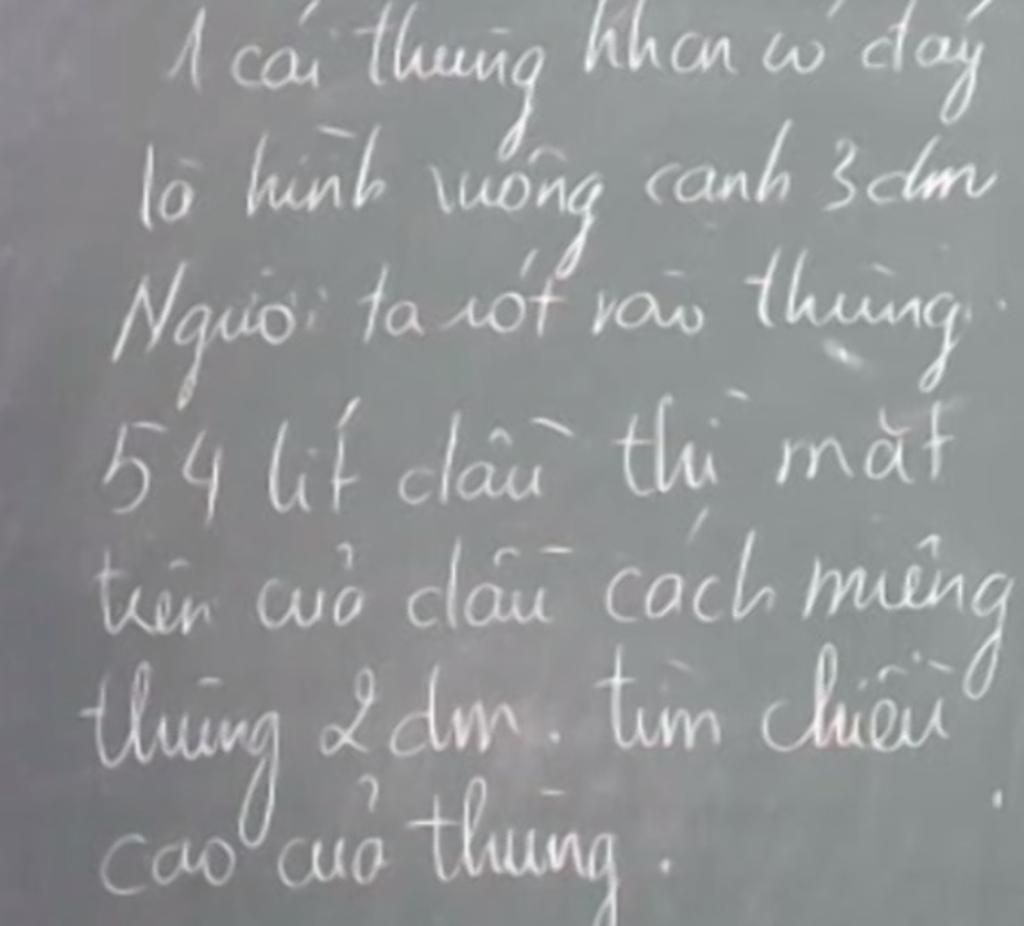 1 cái thùng hhcn có đáy
là hình vuông cạnh 3dm
Người ta rót vào thùng
54 lít dầu thì mặt
trên của dầu cách miệng
thùng 2dm. tìm chiều
cao của thùng.